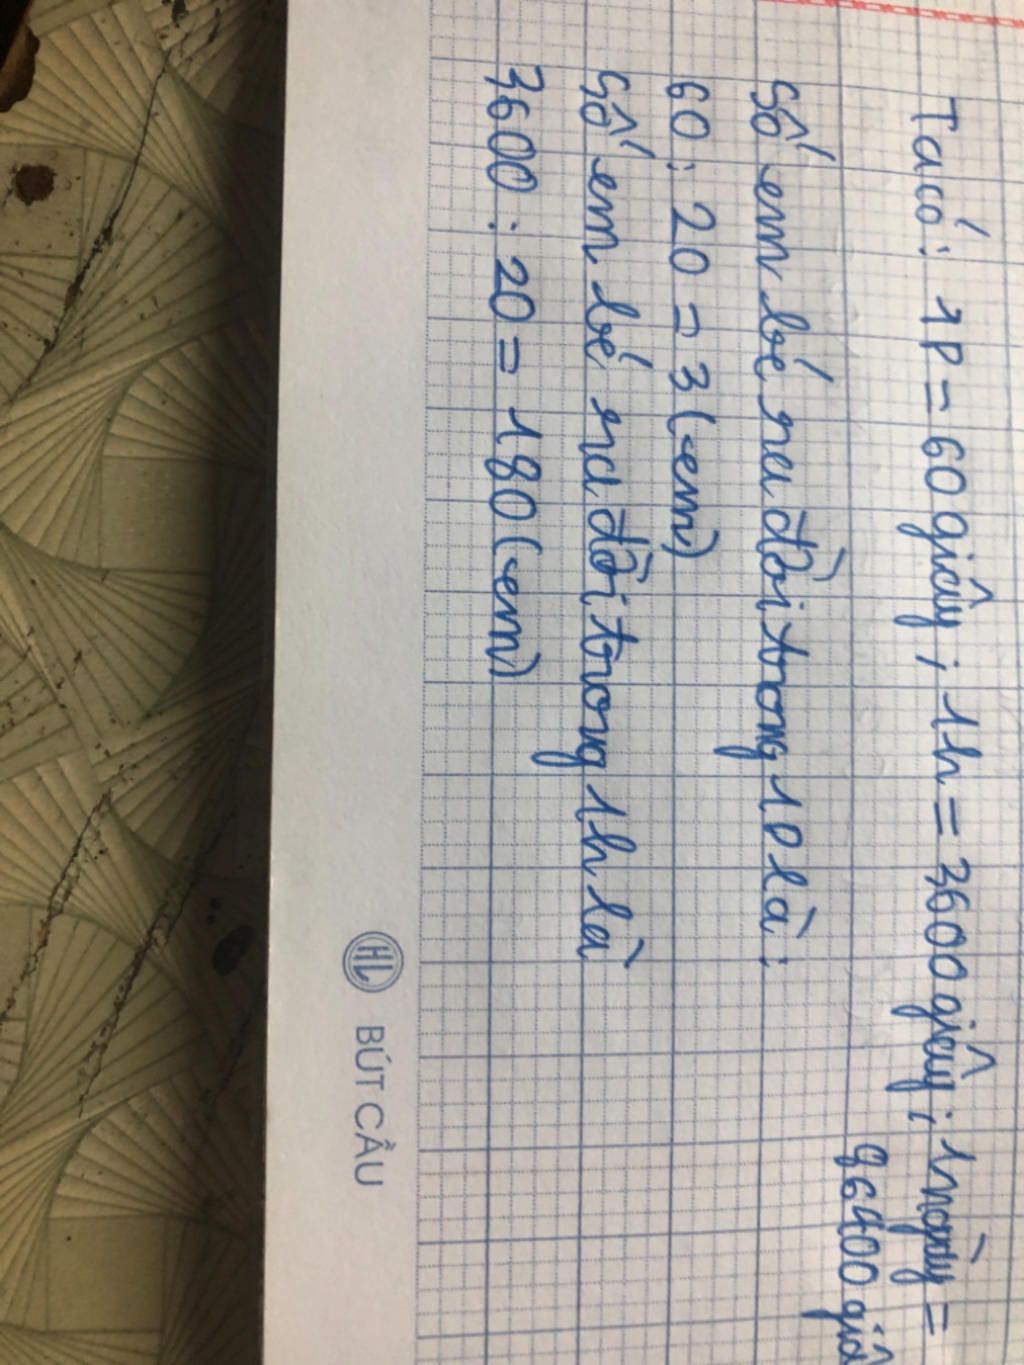 Ta có: 1p = 60 giây; 1h = 3600 giây; 1 ngày =
86400 giâ
Số em bé ra đời trong 1p là:
60 : 20 = 3 (em)
Số em bé ra đời trong 1h là
3600 : 20 = 180 (em)
HL BÚT CẦU